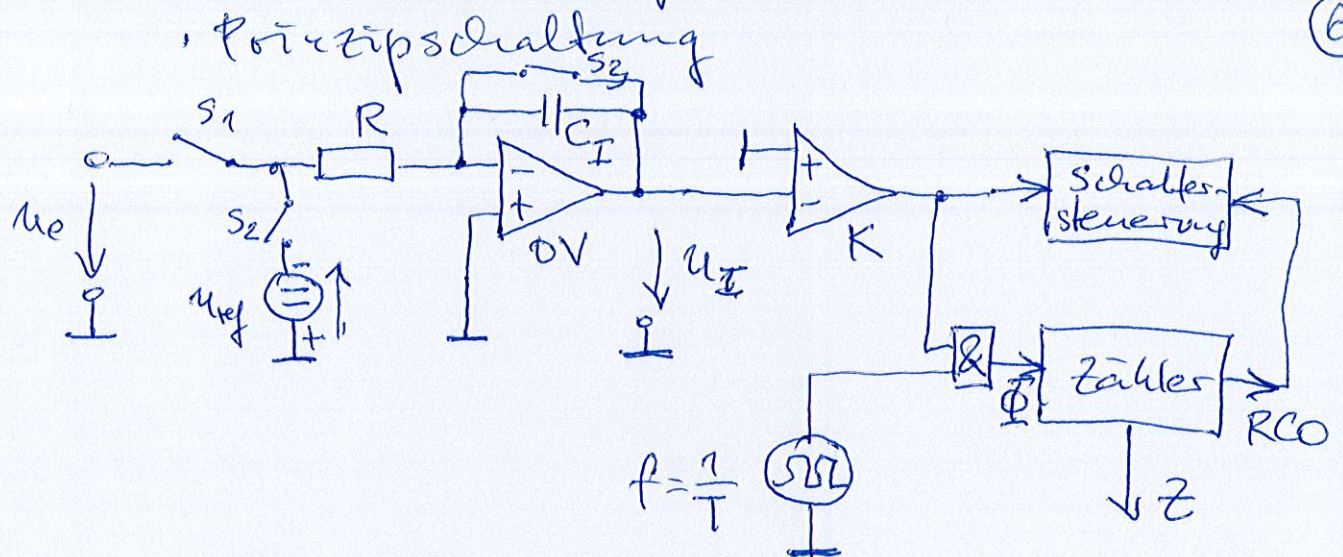 • Prinzipschaltung
6
S1
R
S3
C_I
-
+
OV
u_e
S2
u_ref
-
+
u_I
+
-
K
Schalter-
steuerung
&
Φ
Zähler
RCO
f = 1/T
Z